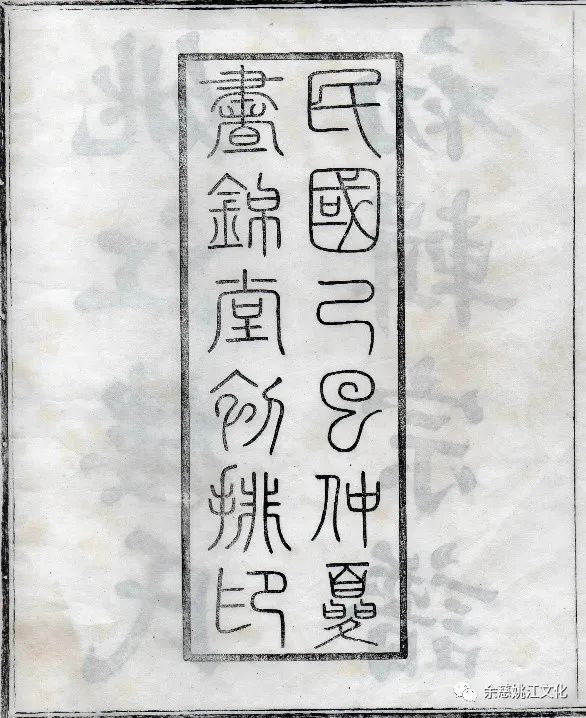 民國己巳仲夏
晝錦堂初排印
余慈姚江文化